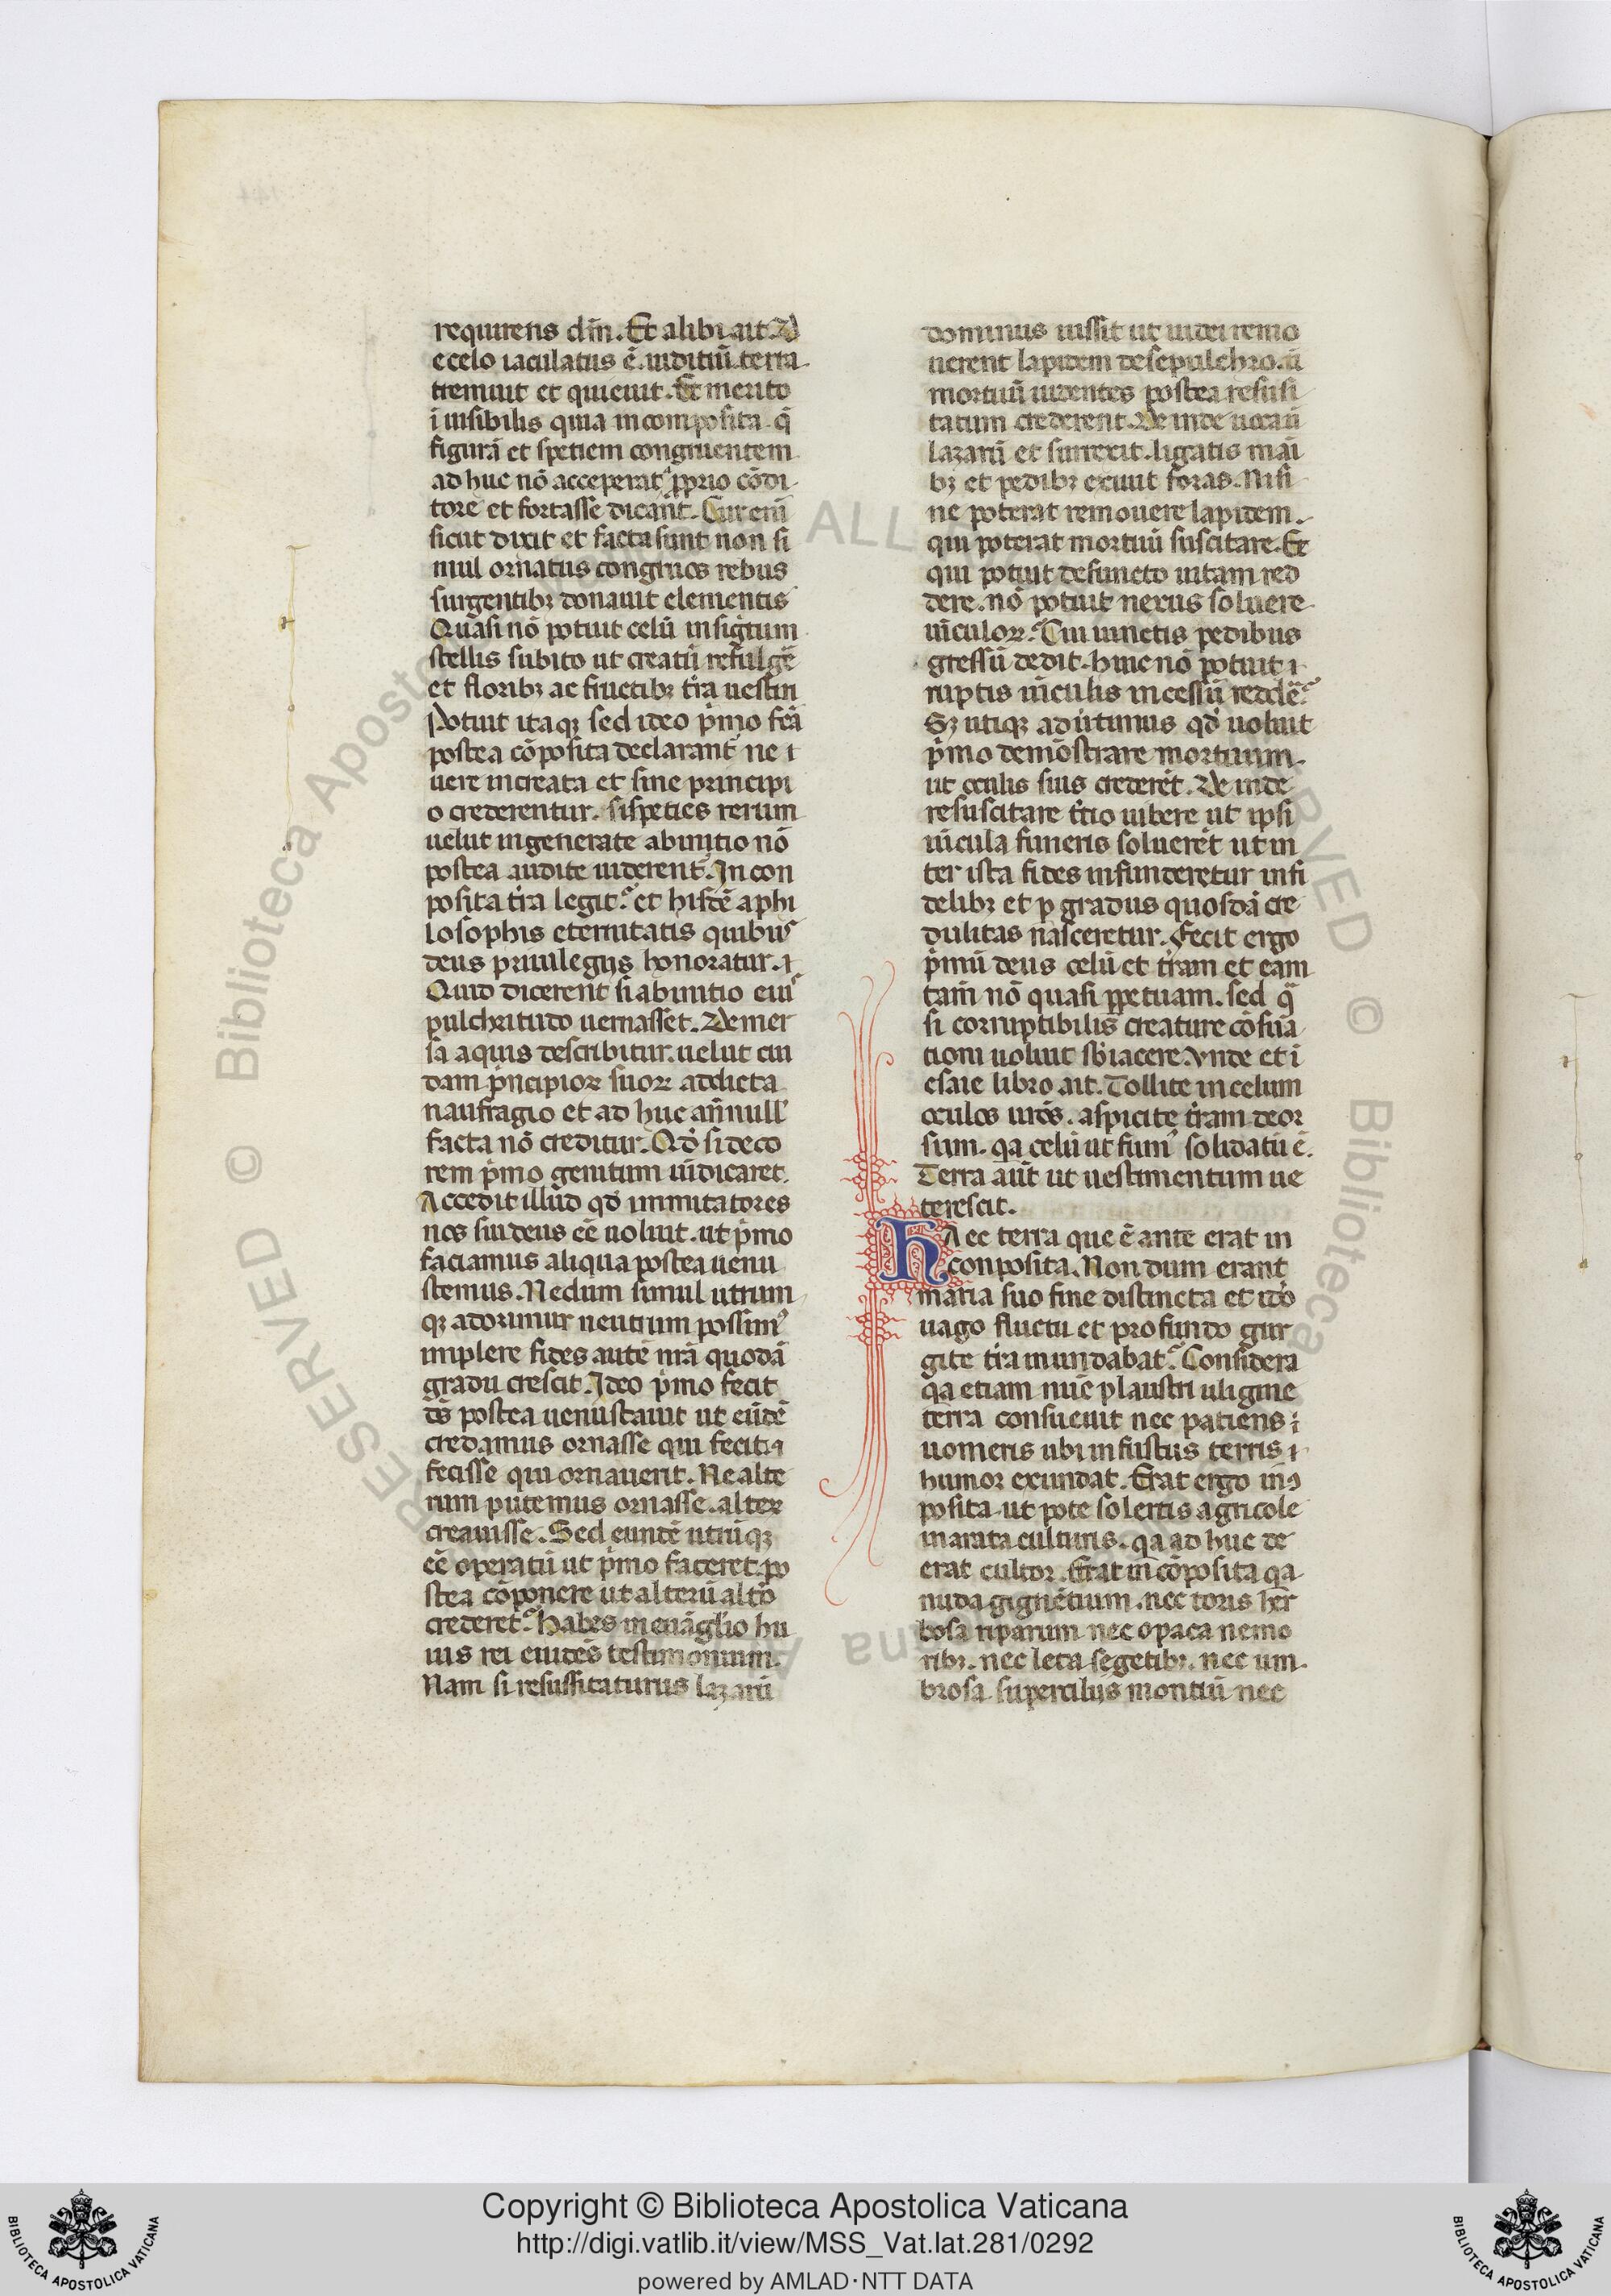 requirens dm̄. Et alibi ait. D
e celo iaculatus ē. iuditiū. terra
tremuit et quieuit. Et merito
i uisibilis quia incomposita. q̄
figurā et spetiem congruentem
ad huc nō acceperat a ꝓprio cōdi
tore et fortasse dicant̄. Cur eni
sicut dixit et facta sunt non si
mul ornatus congruos rebus
surgentibꝫ donauit elementis
Quasi nō potuit celū insigtum
stellis subito ut creatū refulgē
et floribꝫ ac fructibꝫ tr̄a uestiri
Potuit itaqꝫ sed ideo pͥmo fcā
postea cōposita declarant̄ ne i
uere increata et sine principi
o crederentur. si speties rerum
uelut ingenerate ab initio nō
postea audite uiderent̄. In con
posita tr̄a legit᷑. et hisdē a phi
losophis eternitatis quibus
deus priuilegijs honoratur. ⁊
Quid dicerent si ab initio eiu᷒
pulchritudo uernasset. Demer
sa aquis describitur. uelut cui
dam pͥncipioꝝ suoꝝ addicta
naufragio et ad huc a nnull᷒
facta nō creditur. Qd̓ si deco
rem pͥmo genitum uīdicaret.
Accedit illud qd̓ immitatores
nos sui deus eē uoluit. ut pͥmo
faciamus aliqua postea uenu
stemus. Nedum simul utrum
qꝫ adorimur neutrum possim᷒
implere fides autē nr̄a quodā
gradu crescit. Ideo pͥmo fecit
ds̄ postea uenustauit ut eūdē
credamus ornasse qui fecit. ⁊
fecisse qui ornauerit. Ne alte
rum putemus ornasse. alterꝝ
creauisse. Sed eundē utrūqꝫ
eē operatū ut pͥmo faceret. po
stea cōponere ut alterū alt̓o
crederet᷑. Habes in euāglio hu
ius rei euidēs testimonium.
Nam si resussitaturus lazarū
dominus iussit ut iudei remo
uerent lapidem de sepulchro. ū
mortuū uidentes postea resusi
tatum crederent. De inde uocaū
lazarū et surrexit. ligatis māi
bꝫ et pedibꝫ exiuit foras. Nisi
ne poterat remouere lapidem.
qui poterat mortuū suscitare. Et
qui potuit defuncto uitam red
dere. nō potuit nexus soluere
uīculoꝝ. Cui uinctis pedibus
gressū dedit. huic nō potuit i
ruptis uīculis incessū reddē.
Sꝫ utiqꝫ aduītimus qd̓ uoluit
pͥmo demōstrare mortuum.
ut oculis suis crederēt. De inde
resuscitare t̓cio iubere ut ipsi
uīcula funeris soluerēt ut in
ter ista fides infunderetur infi
delibꝫ et ꝑ gradus quosdā cre
dulitas nasceretur. Fecit ergo
pͥmū deus celū et tr̄am et eam
tam̄ nō quasi ꝑpetuam. sed q̄
si corruptibilis creature cōsūa
tioni uoluit sb̓iacere. Vnde et i
esaie libro ait. Tollite in celum
oculos uros̄. aspicite tr̄am deor
sum. qa celū ut fum᷒ solidatū ē.
Terra aūt ut uestimentum ue
terescit.
HAec terra que ē ante erat in
conposita. Non dum erant
maria suo fine distincta et ido̓
uago fluctu et profundo gur
gite tr̄a inundabat᷑. Considera
qa etiam nūc plaustri uligine
terra consueuit nec patiens ī
uomeris ubi infusus terris ⁊
humor exundat. Erat ergo inꝯ
posita ut pote solertis agricole
inarata culturis. qa ad huc de
erat cultor. Erat incōposita qa
nuda gignētium. nec toris her
bosa riparum nec opaca nemo
ribꝫ. nec leta segetibꝫ. nec um
brosa supercilijs montiū nec
Copyright © Biblioteca Apostolica Vaticana
http://digi.vatlib.it/view/MSS_Vat.lat.281/0292
powered by AMLAD·NTT DATA
BIBLIOTECA APOSTOLICA VATICANA
BIBLIOTECA APOSTOLICA VATICANA